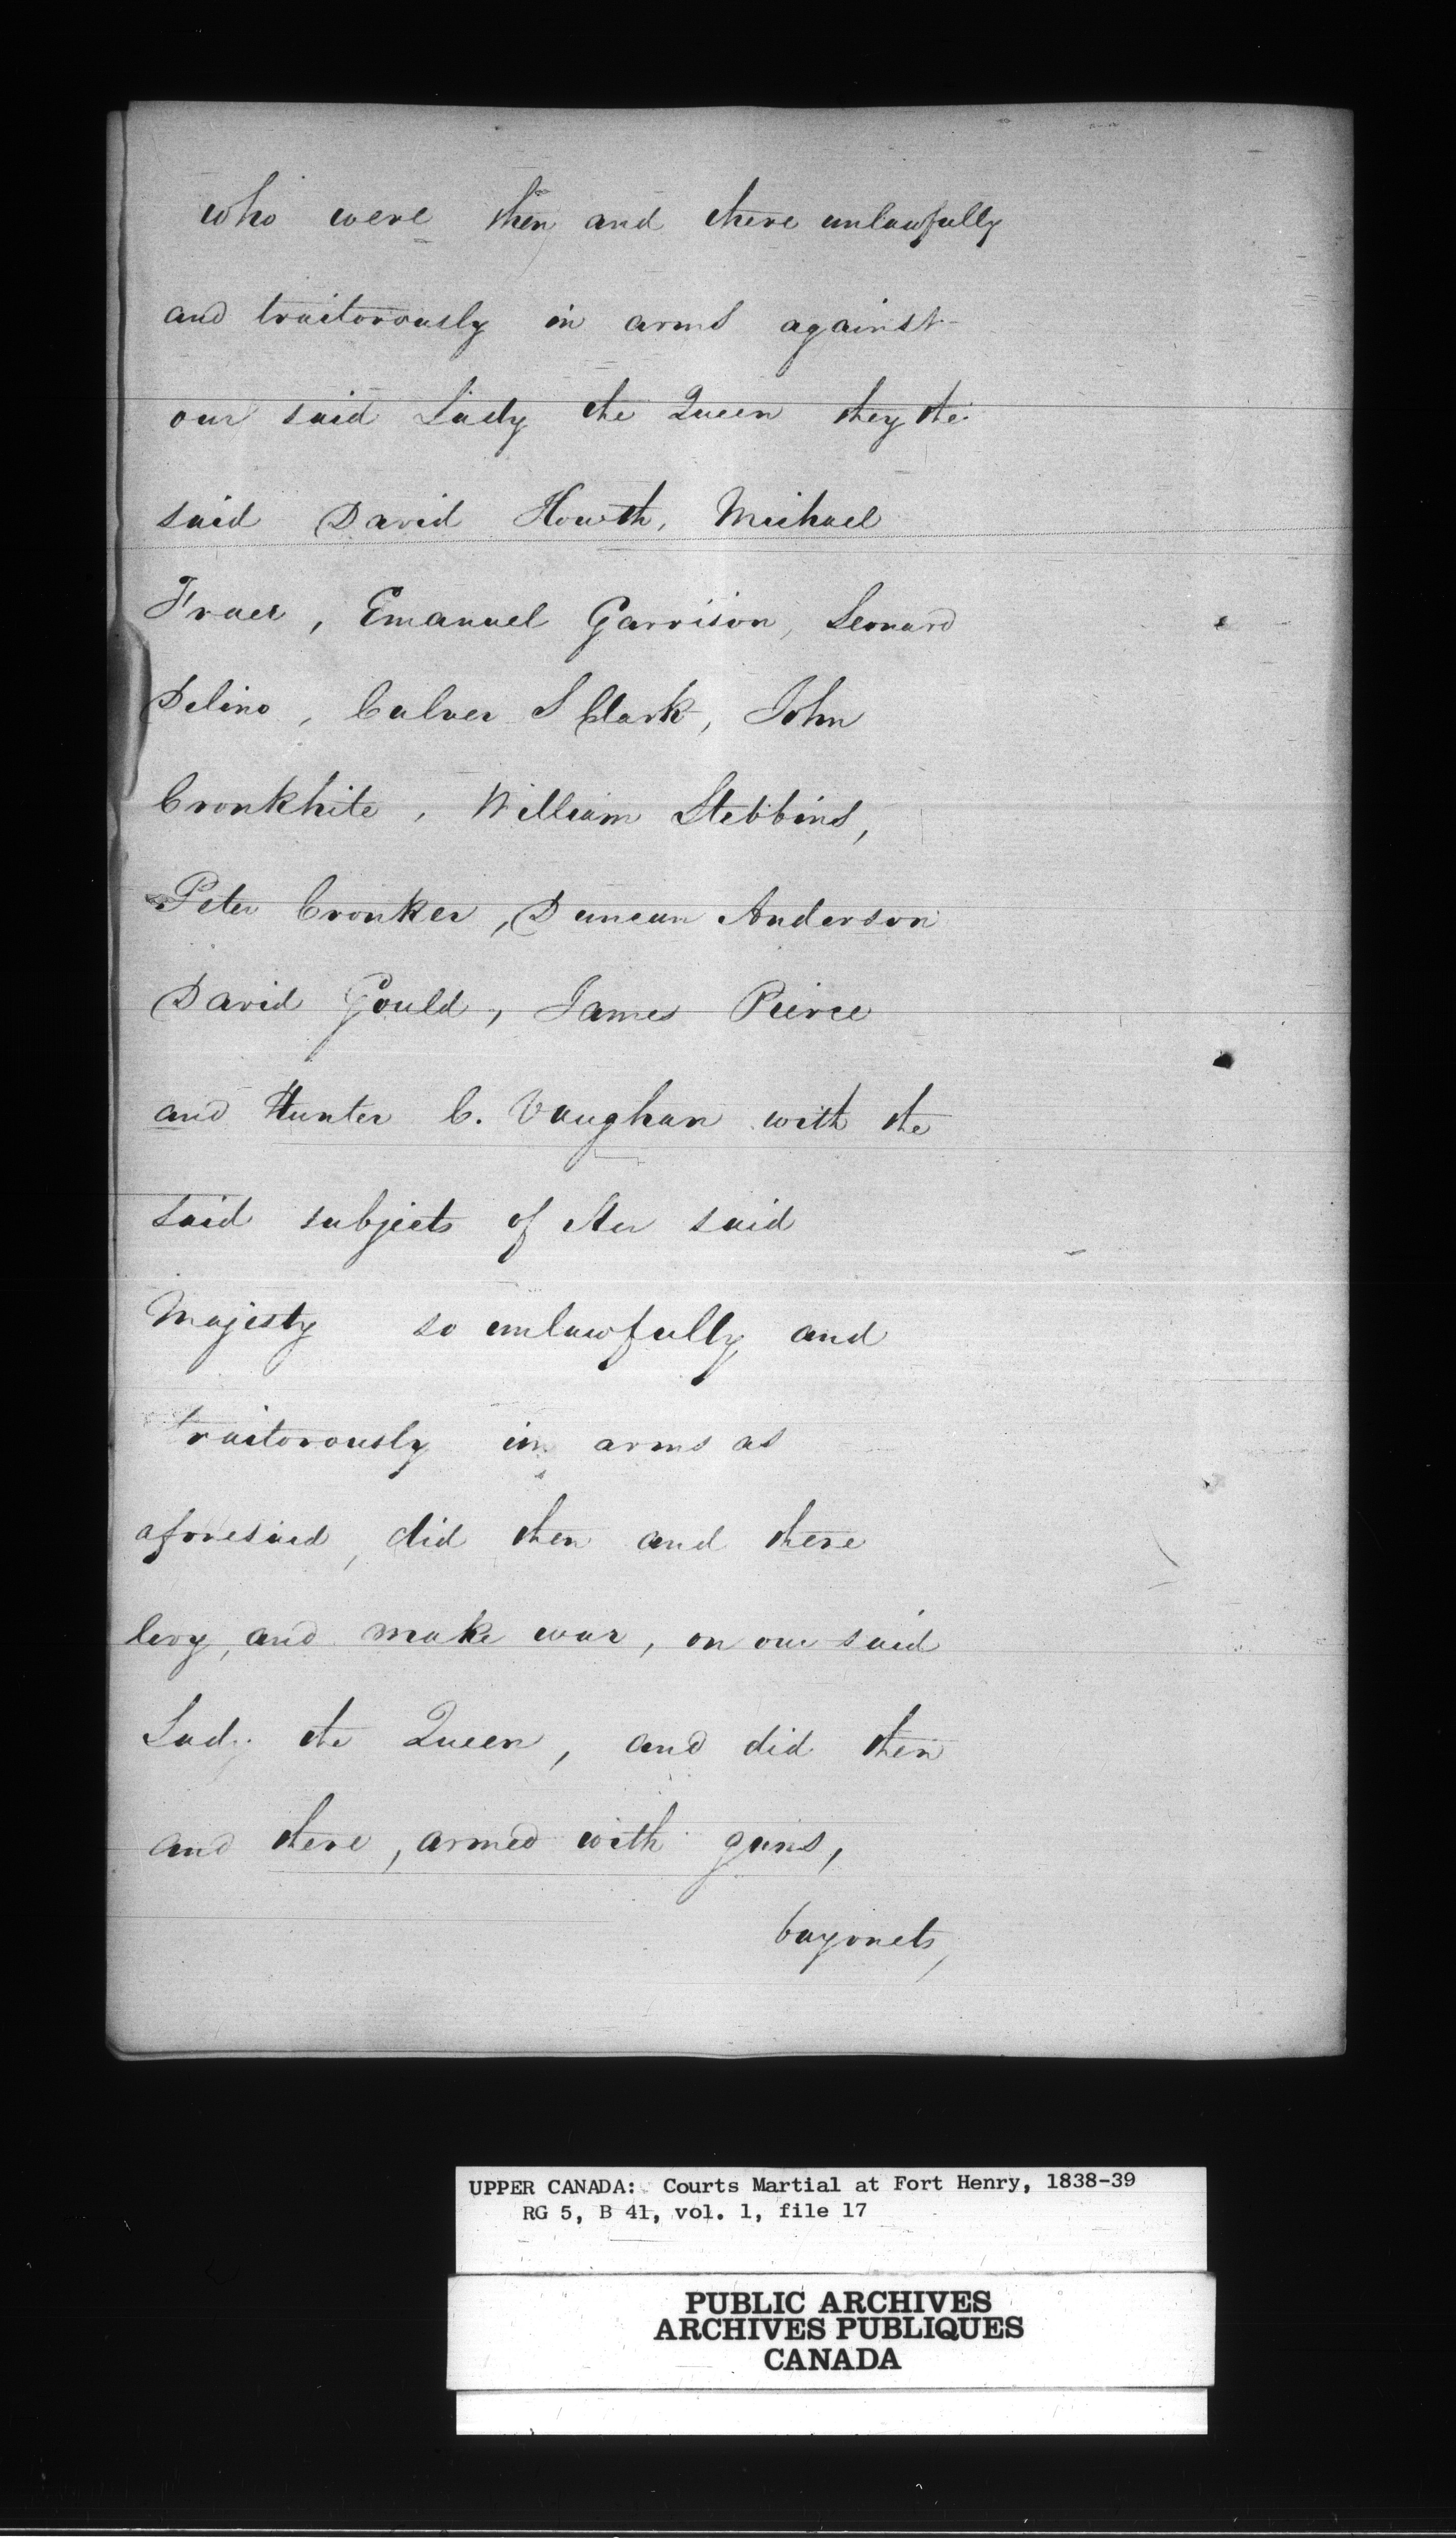 who were then and there unlawfully
and traitorously in arms against
our said Lady the Queen they the
said David Houth, Michael
Fraer, Emanuel Garrison, Leonard
Delino, Culver S Clark, John
Cronkhite, William Stebbins,
Peter Cronker, Duncan Anderson
David Gould, James Peirce
and Hunter C. Vaughan with the
said subjects of Her said
Majesty so unlawfully and
traitorously in arms as
aforesaid, did then and there
levy, and make war, on our said
Lady the Queen, and did then
and there, armed with guns,
bayonets,
UPPER CANADA: Courts Martial at Fort Henry, 1838-39
RG 5, B 41, vol. 1, file 17
PUBLIC ARCHIVES
ARCHIVES PUBLIQUES
CANADA